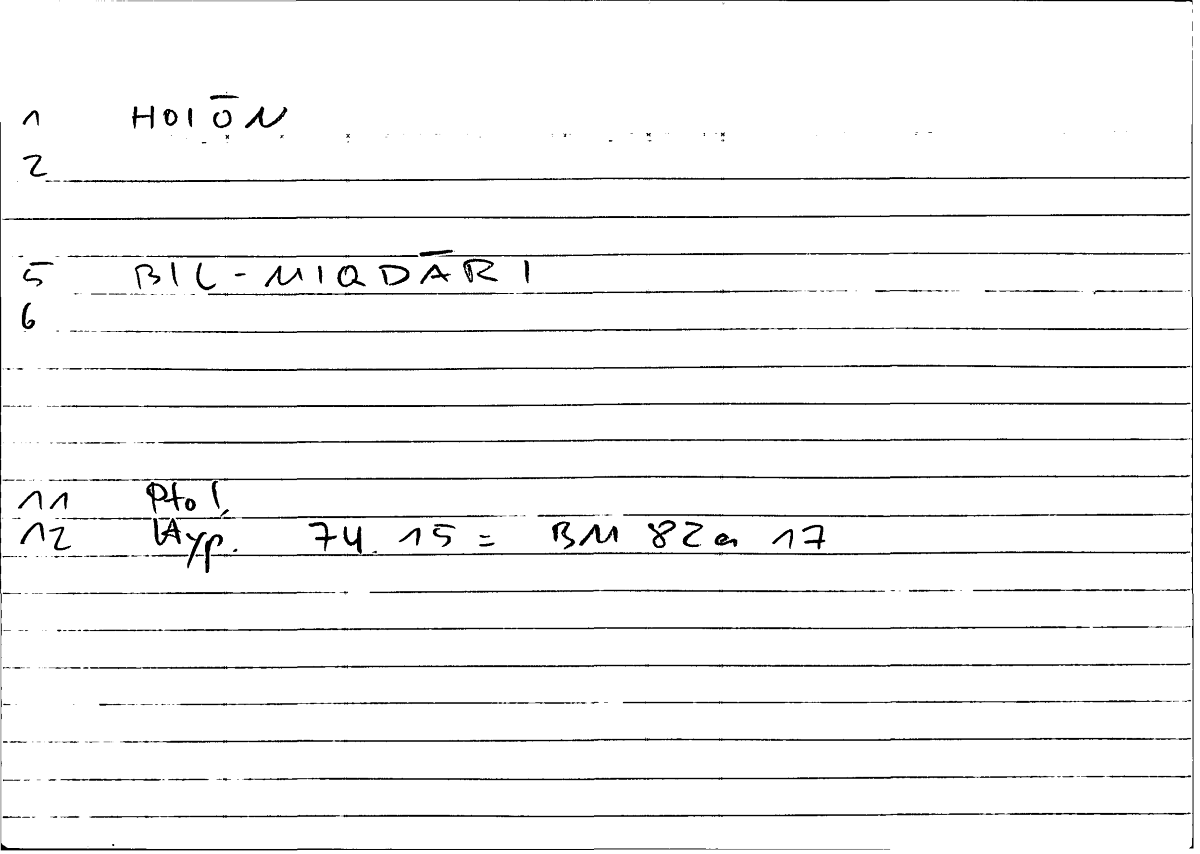 1 HOIŌN
2
5 BIL-MIQDĀRI
6
11 Ptol.
12 Hyp. 74.15 = BM 82a 17